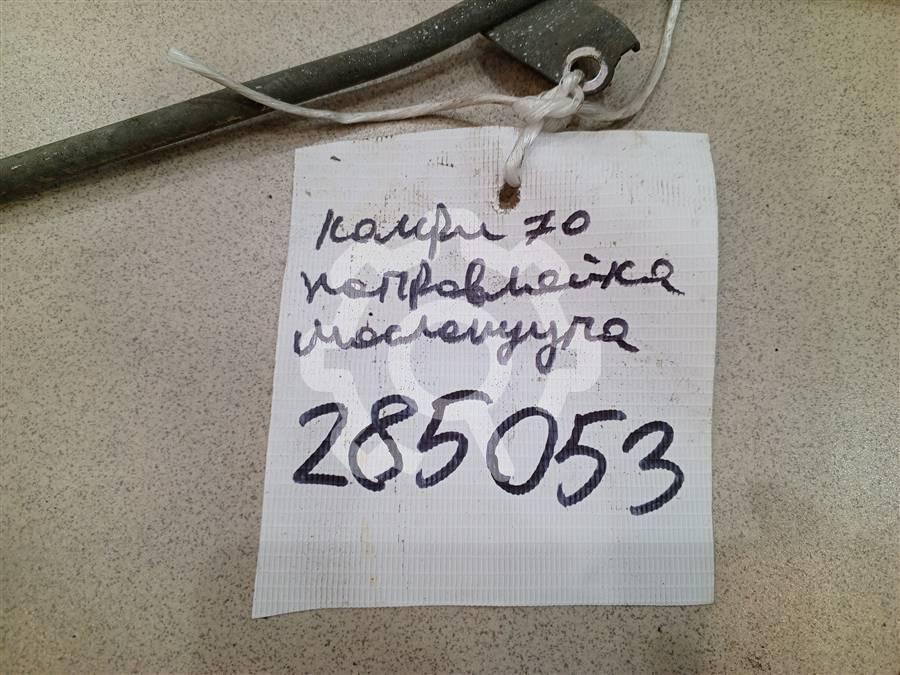 камри 70
направляйка
маслощупа
285053